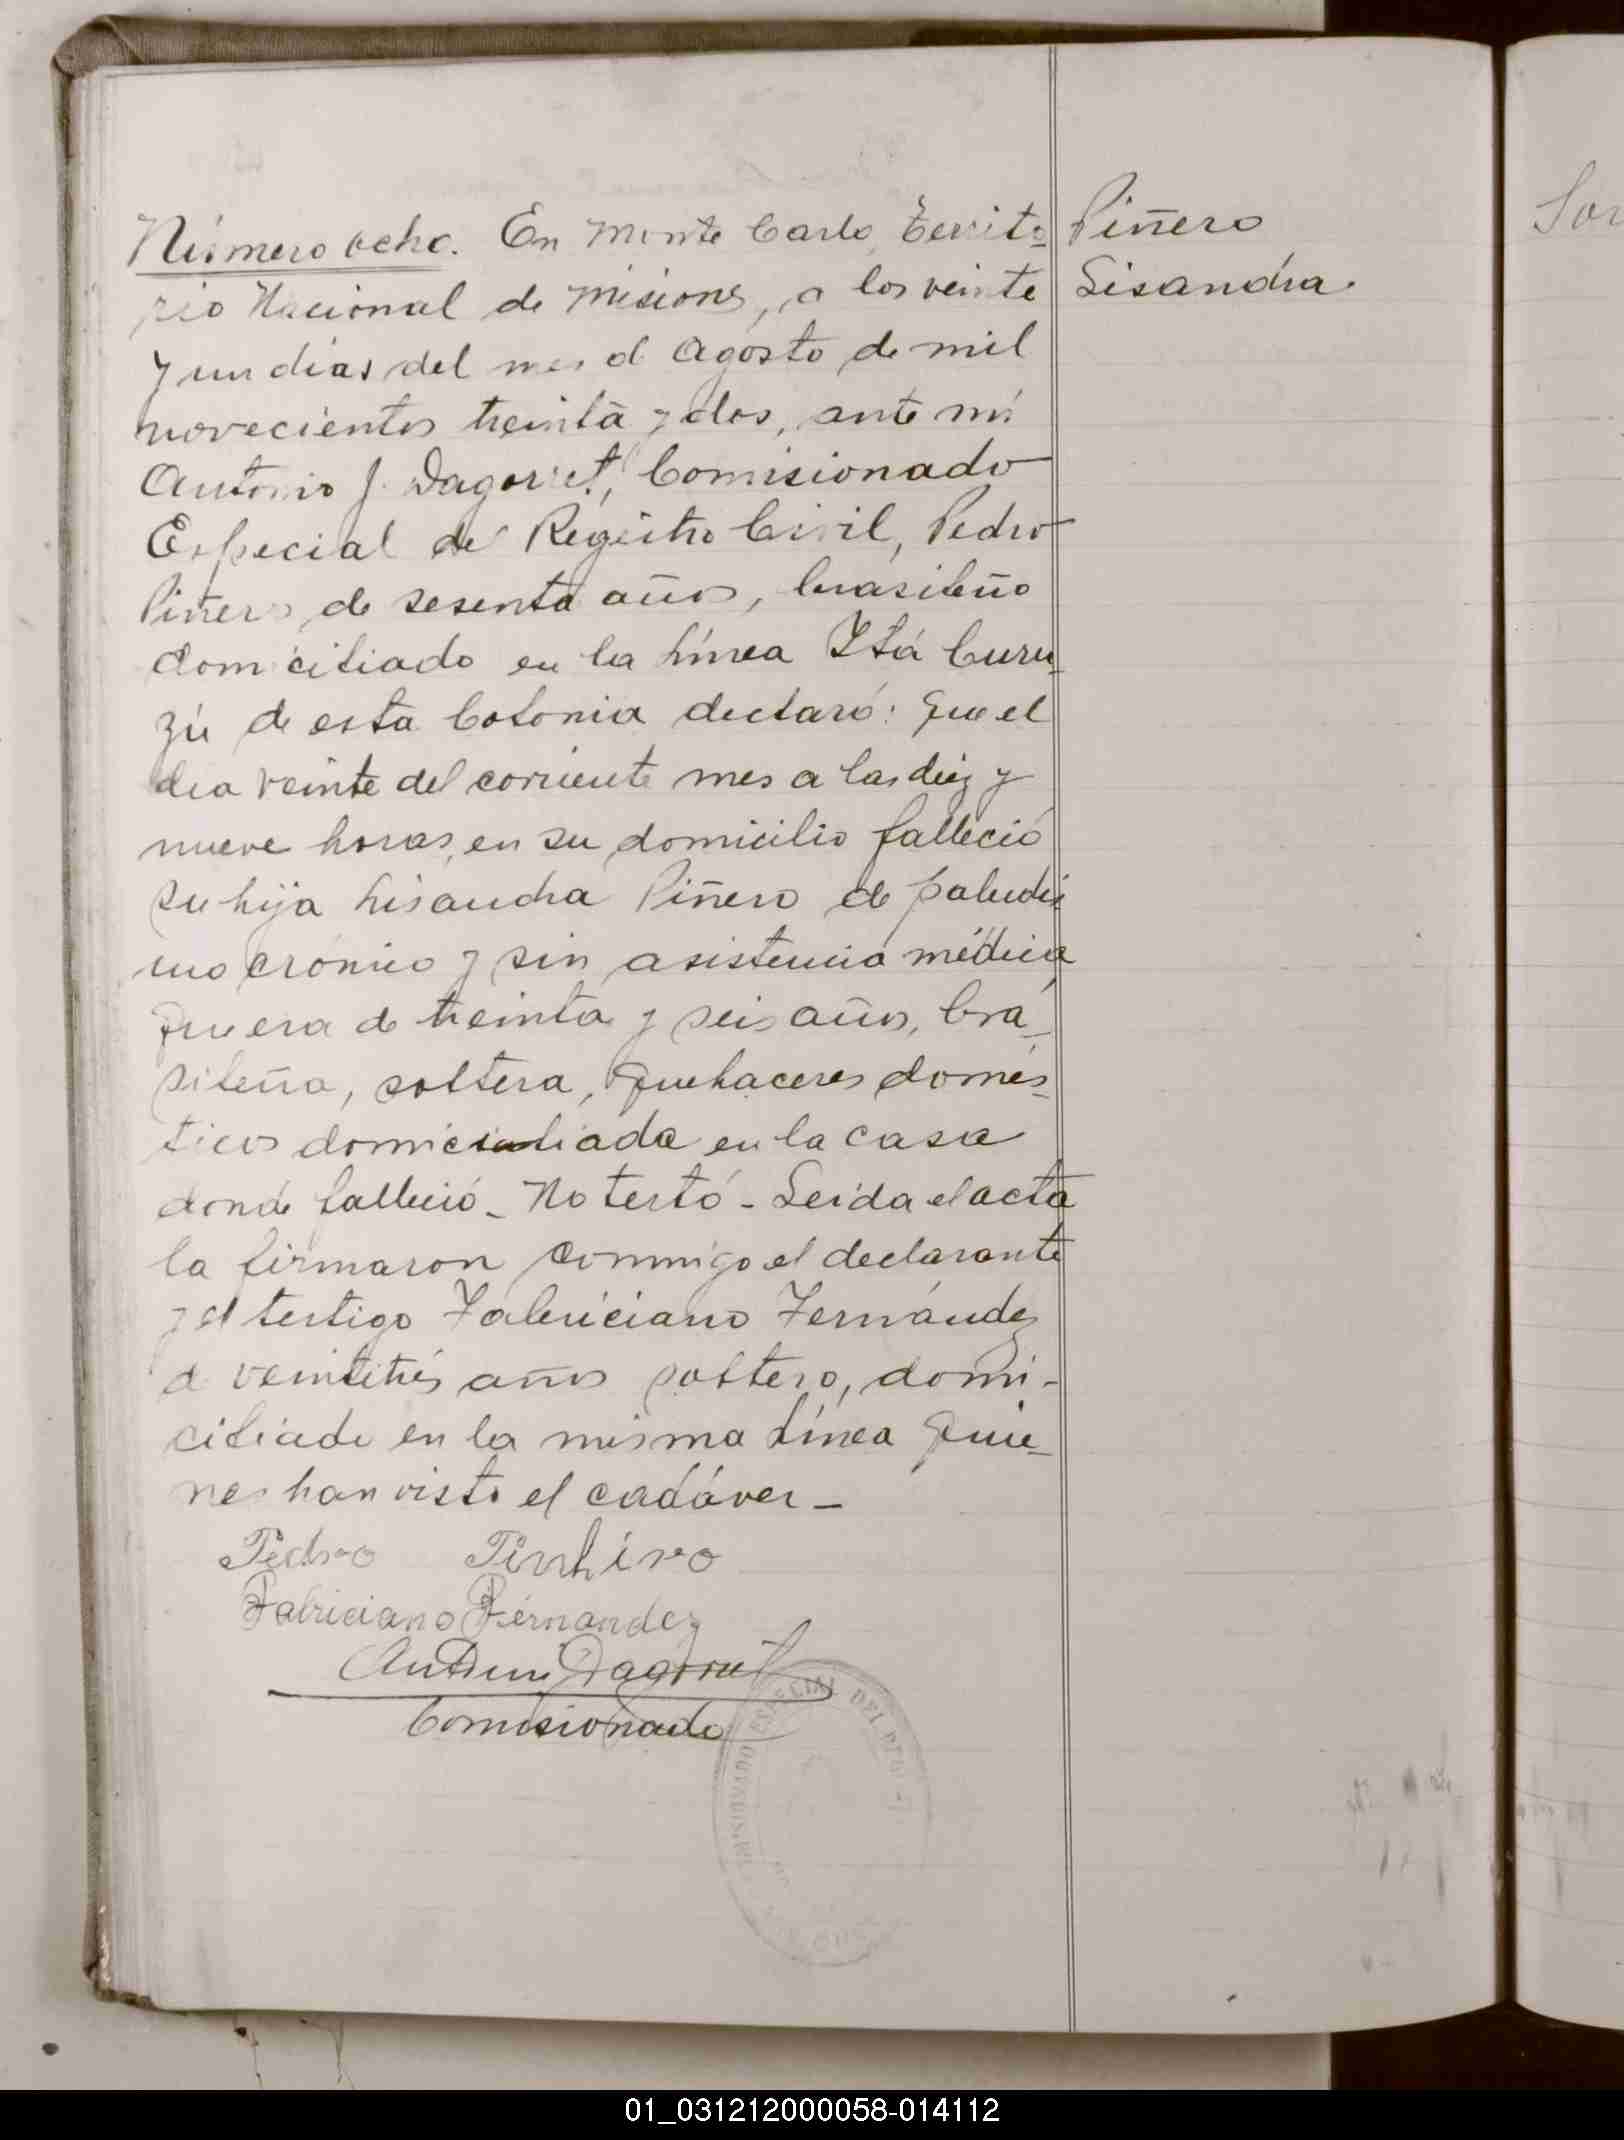 Número ocho. En Monte Carlo, Territo-
rio Nacional de Misiones, a los veinte
y un días del mes d Agosto de mil
novecientos treinta y dos, ante mí
Antonio J. Dagorret, Comisionado
Especial de Registro Civil, Pedro
Piñero de sesenta años, brasileño
domiciliado en la Línea Itá Curu-
zú de esta Colonia declaró: Que el
día veinte del corriente mes a las diez y
nueve horas, en su domicilio falleció
su hija Lisandra Piñero de paludis-
mo crónico y sin asistencia médica
Que era de treinta y seis años, bra-
sileña, soltera, Quehaceres domés-
ticos domiciliada en la casa
donde falleció - No testó - Leída el acta
la firmaron conmigo el declarante
y el testigo Fabriciano Fernández
de veintitrés años soltero, domi-
ciliado en la misma Línea Quie-
nes han visto el cadáver -
Pedro Pinhiro
Fabriciano Fernandez
Antonio Dagorret
Comisionado
COMISIONADO ESPECIAL DEL
Piñero
Lisandra.
01_031212000058-014112